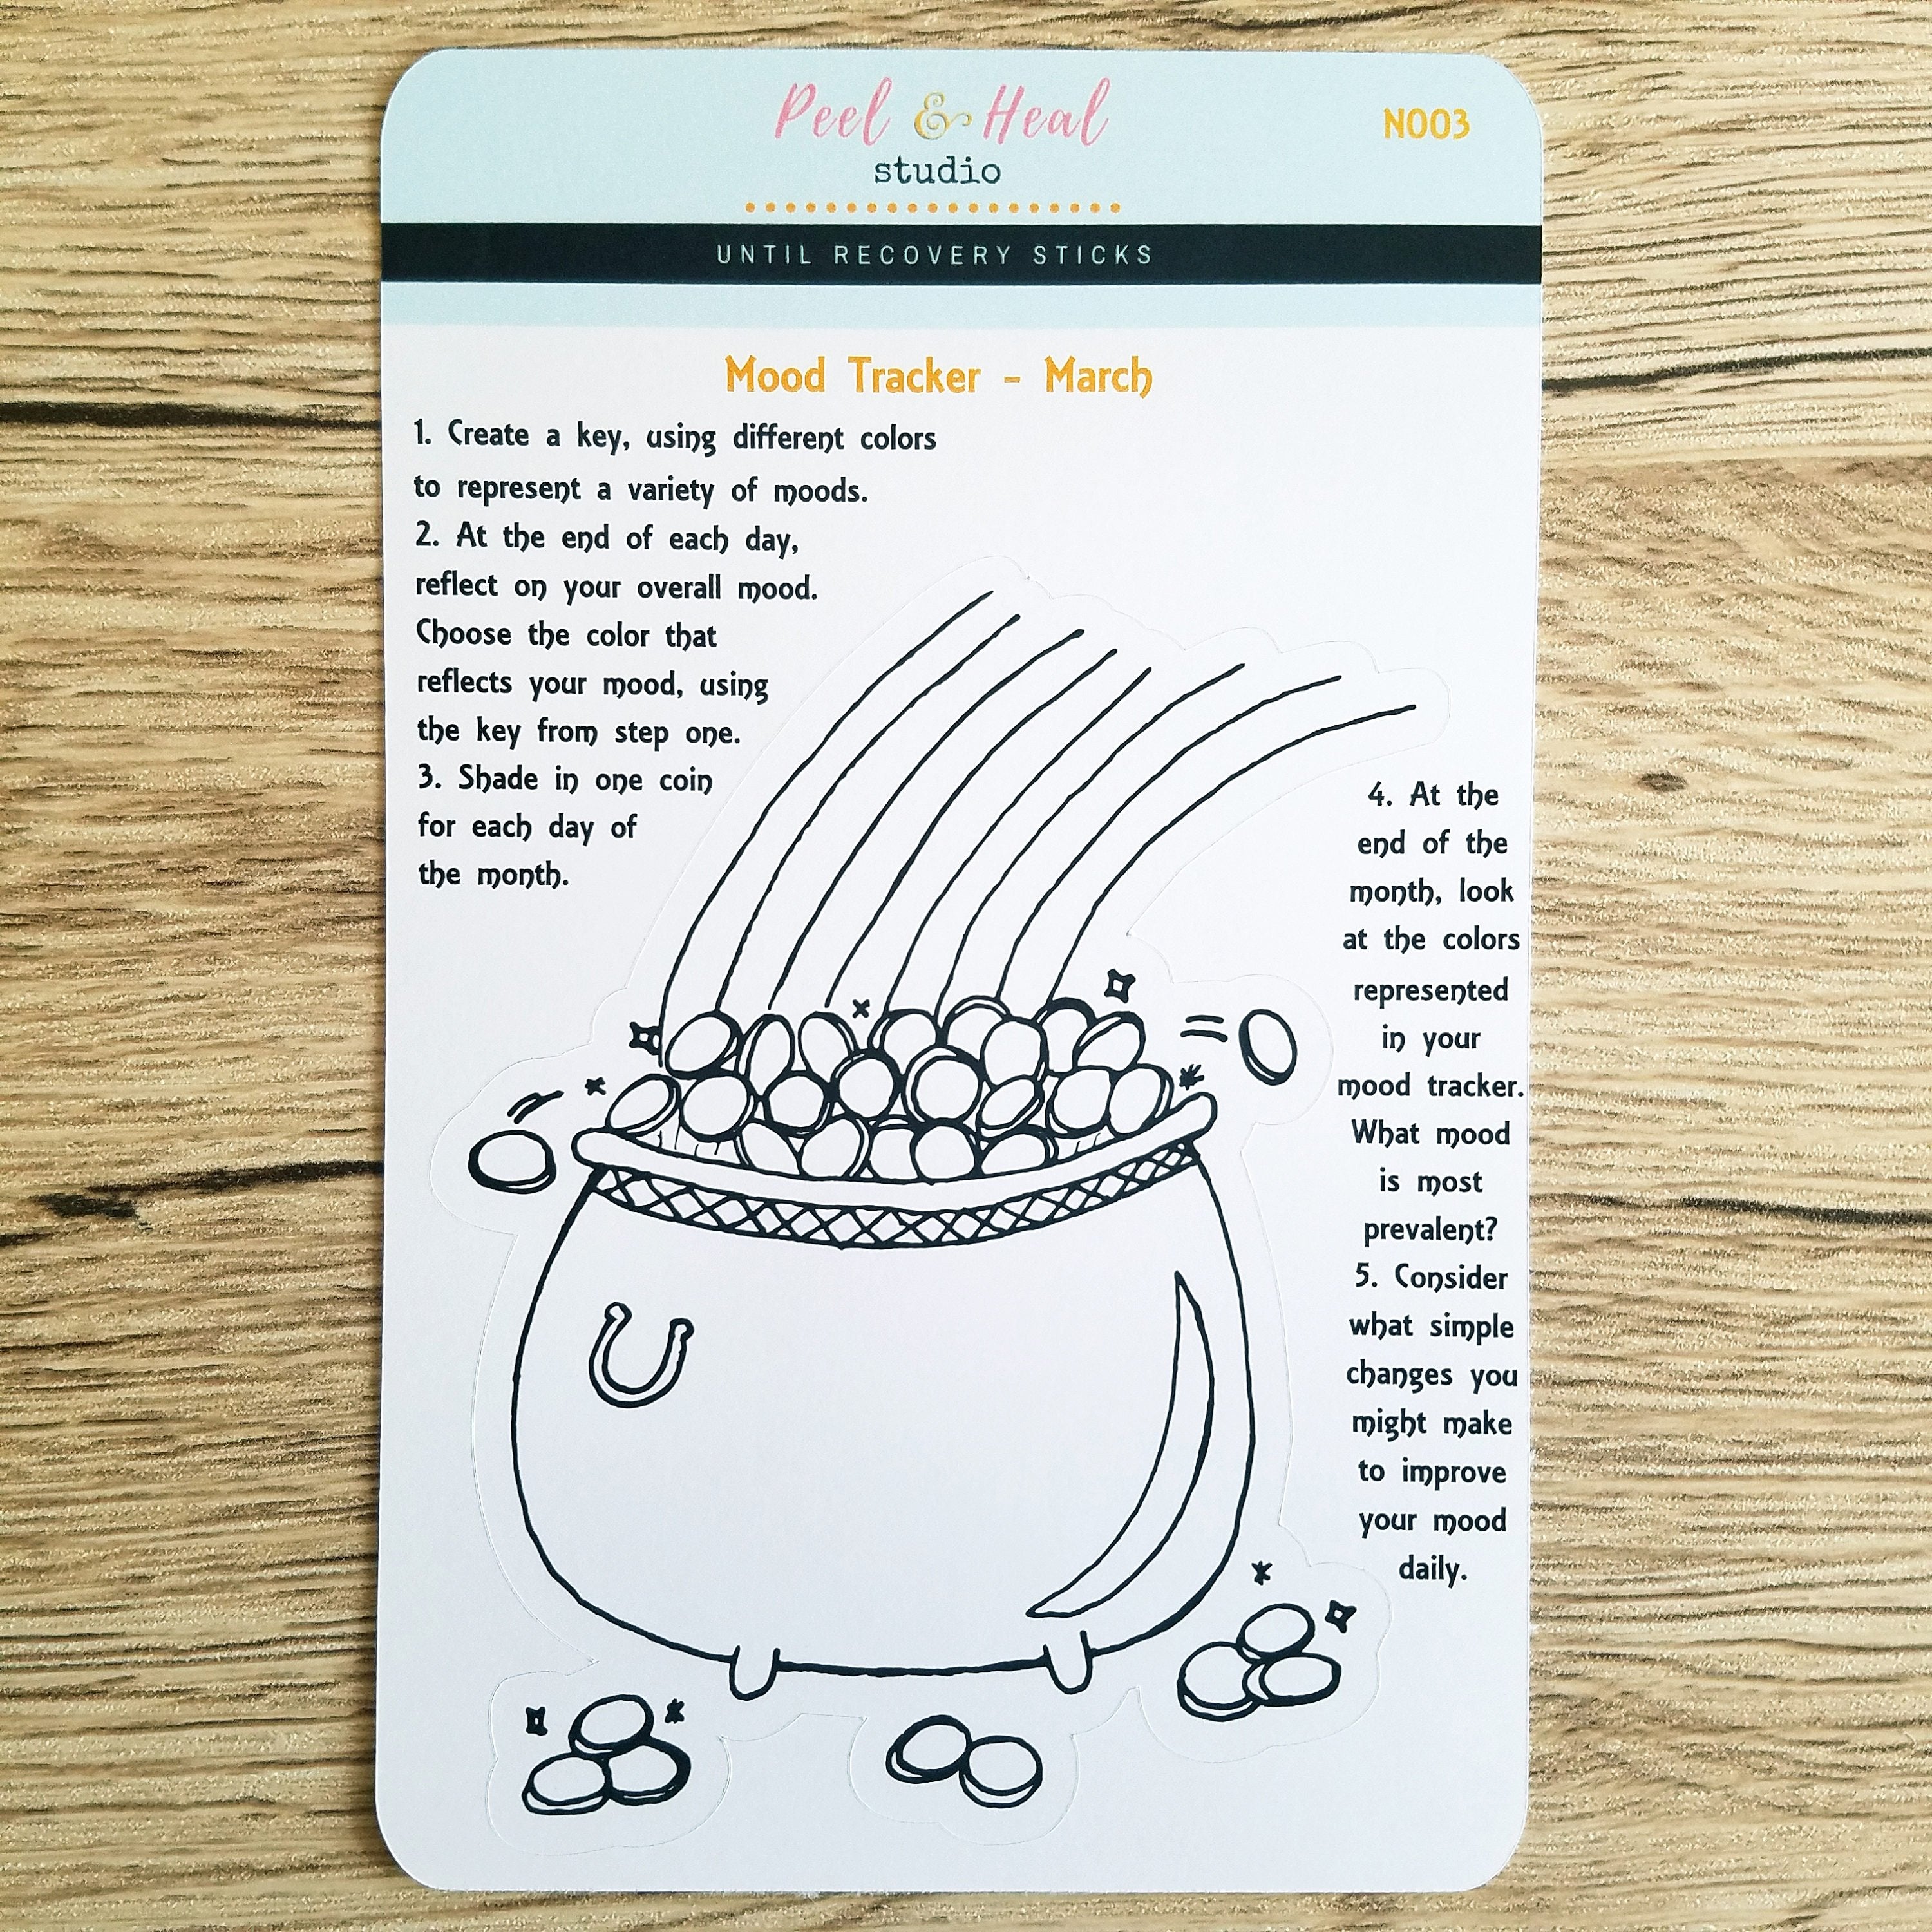 Peel & Heal
studio
N003
UNTIL RECOVERY STICKS
Mood Tracker - March
1. Create a key, using different colors
to represent a variety of moods.
2. At the end of each day,
reflect on your overall mood.
Choose the color that
reflects your mood, using
the key from step one.
3. Shade in one coin
for each day of
the month.
4. At the
end of the
month, look
at the colors
represented
in your
mood tracker.
What mood
is most
prevalent?
5. Consider
what simple
changes you
might make
to improve
your mood
daily.